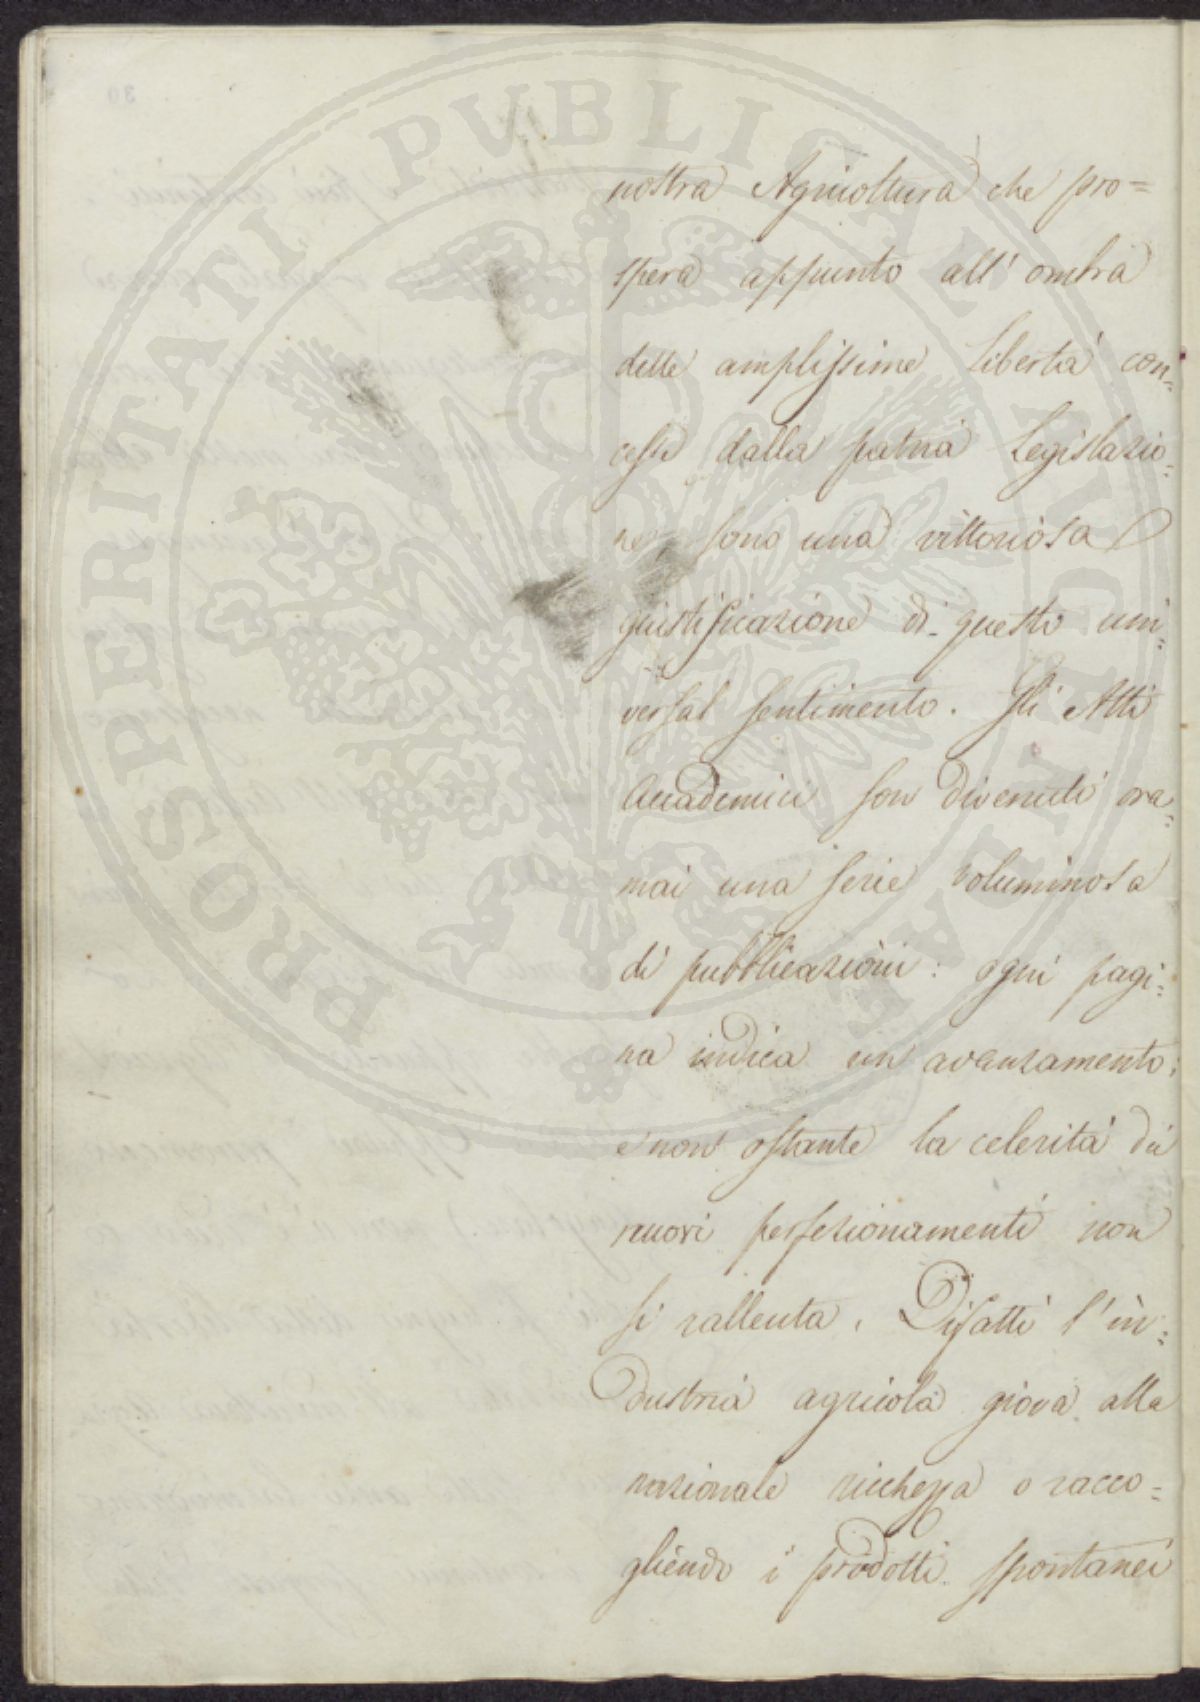 nostra Agricoltura che pro=
spera appunto all' ombra
delle amplissime Libertà con=
cesse dalla patria Legislazio=
ne sono una vittoriosa
giustificazione di questo uni=
versal sentimento. Gli Atti
Accademici son divenuti ora=
mai una serie voluminosa
di pubblicazioni: ogni pagi=
na indica un avanzamento;
e non ostante la celerità dei
nuovi perfezionamenti non
si rallenta. Difatti l'in=
dustria agricola giova alla
nazionale ricchezza o racco=
gliendo i prodotti spontanei
PROSPERITATI PUBLICAE AUGENDAE